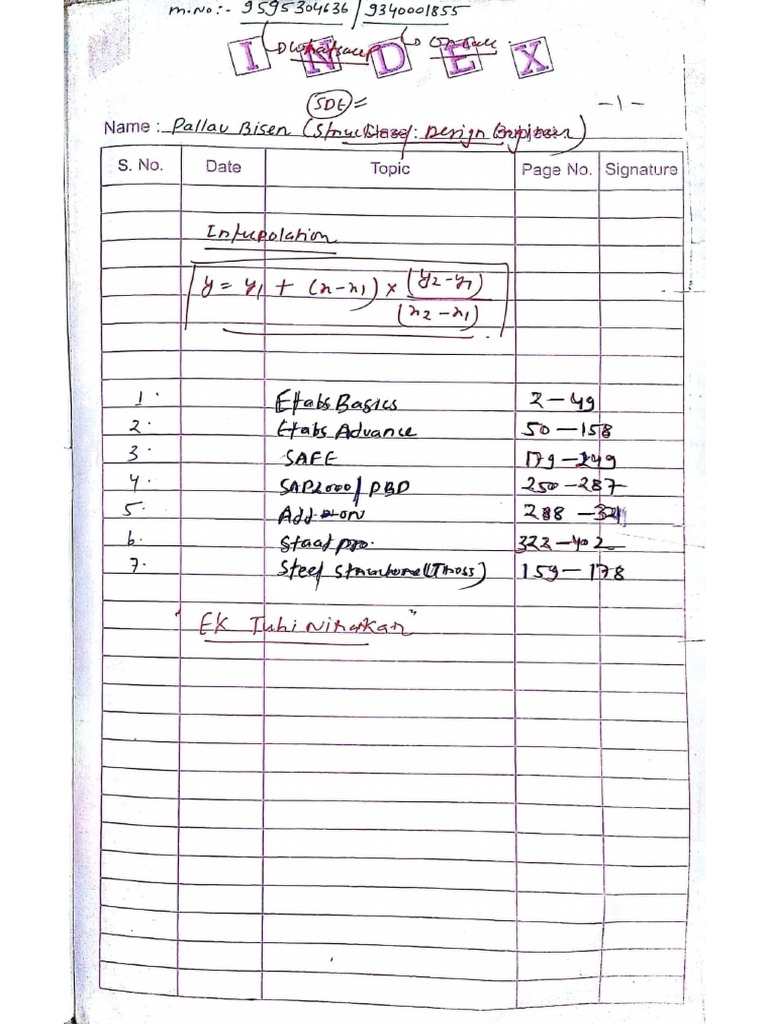 M.No:- 9595304636 / 9340001855
whatsapp on call
INDEX
SDE =
-1-
Name : Pallav Bisen (Structural Design Engineer)
S. No. Date Topic Page No. Signature
Interpolation
y = y1 + (x-x1) × (y2-y1) / (x2-x1)
1. Etabs Basics 2-49
2. Etabs Advance 50-158
3. SAFE 179-249
4. SAP2000/PBD 250-287
5. Add-on 288-321
6. Staad pro. 322-402
7. Steel Structure (Truss) 159-178
"EK Tuhi Nirankar"